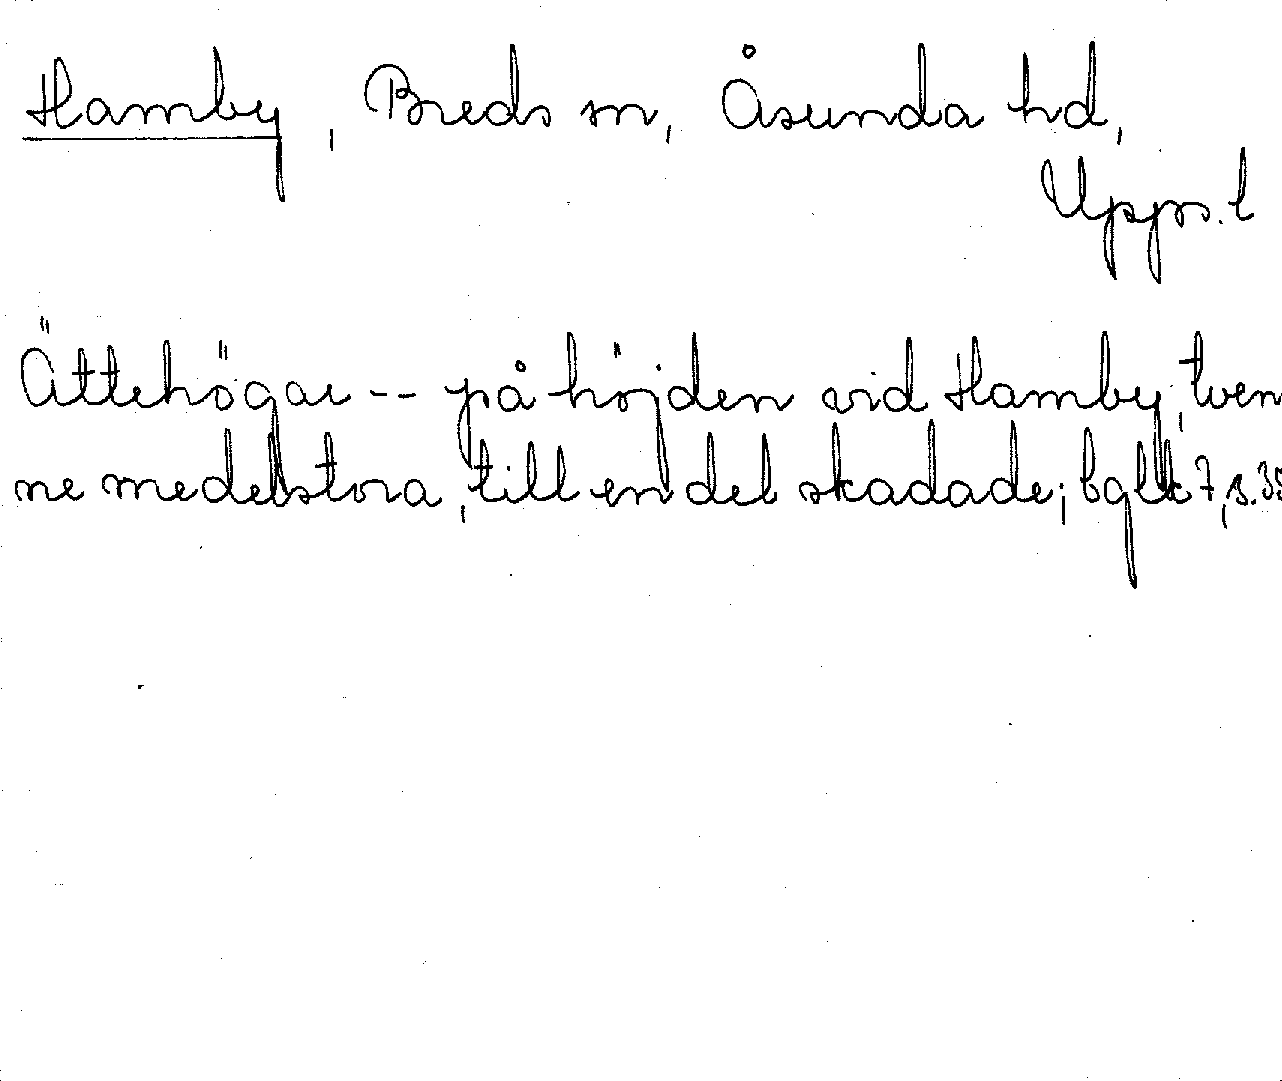 Hamby, Breds sn, Åsunda hd,
Upps. l
Ättehögar -- på höjden vid Hamby, tven
ne medelstora, till en del skadade; bglk 7, s. 35